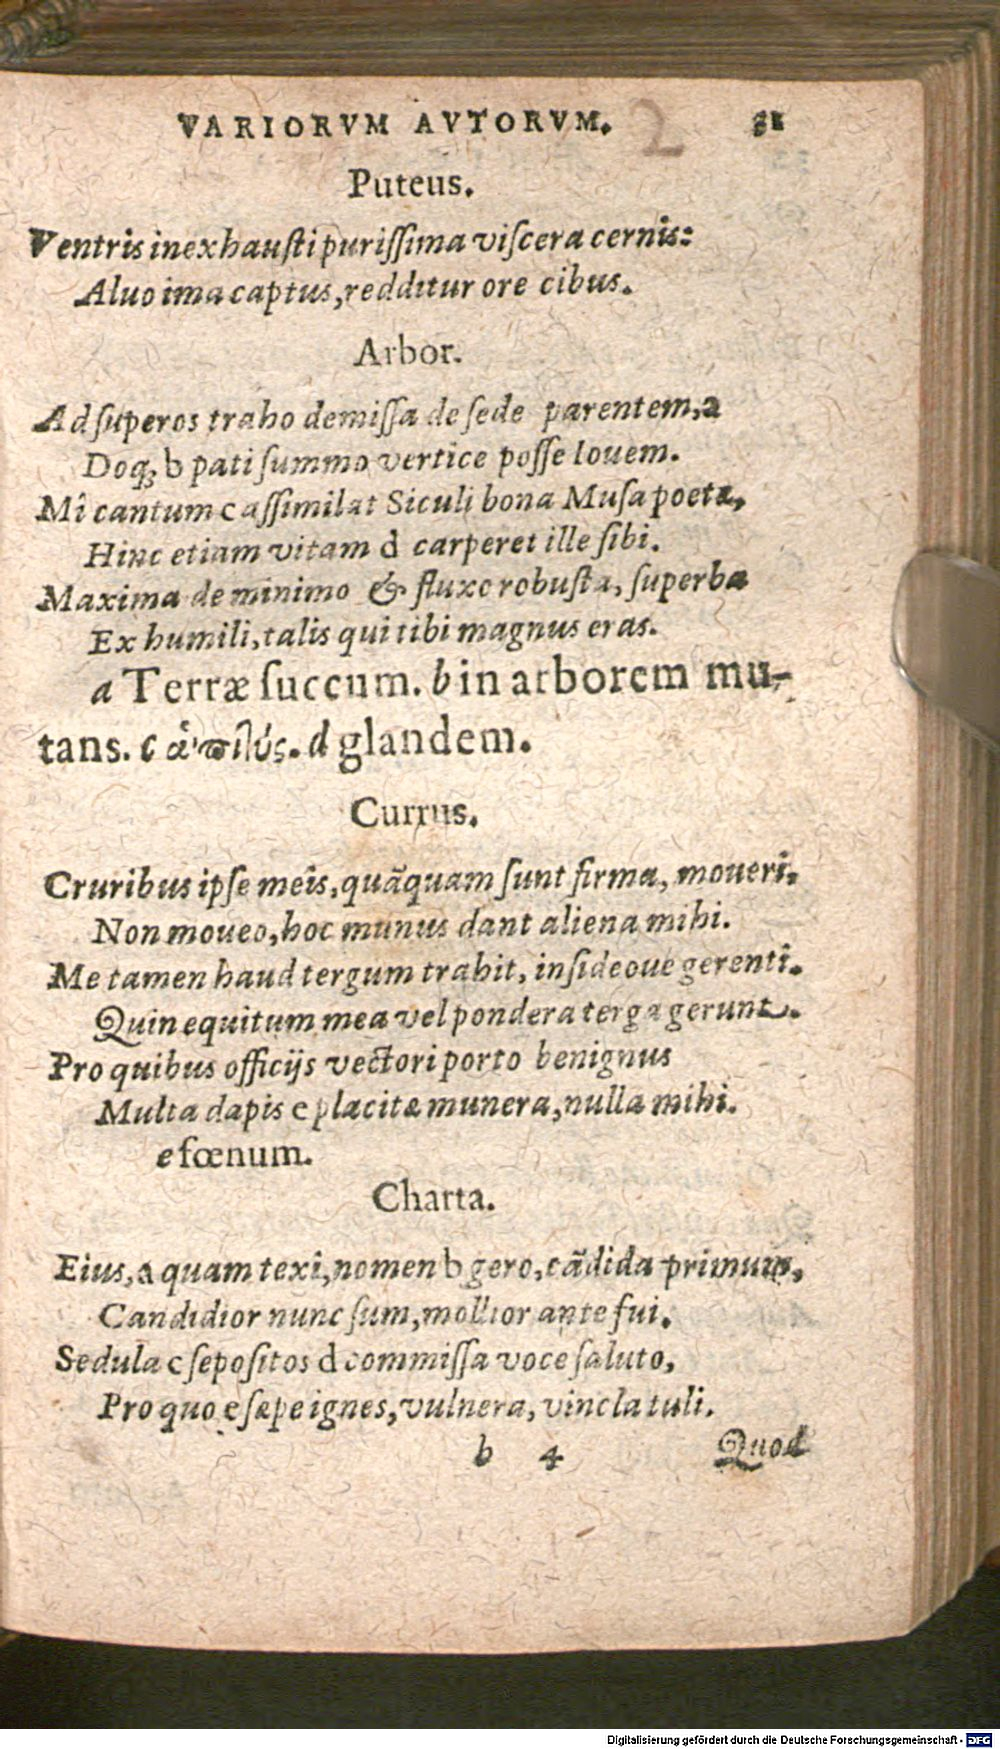 VARIORVM AVTORVM.
Puteus.
Ventris inexhausti purissima viscera cernis:
Aluo ima captus, redditur ore cibus.
Arbor.
Ad superos traho demissa de sede parentem, a
Doq; b pati summo vertice posse Iouem.
Mî cantum c assimilat Siculi bona Musa poetæ,
Hinc etiam vitam d carperet ille sibi.
Maxima de minimo & fluxo robusta, superba
Ex humili, talis qui tibi magnus eras.
a Terræ succum. b in arborem mu-
tans. c d glandem.
Currus.
Cruribus ipse meis, quãquam sunt firma, moueri.
Non moueo, hoc munus dant aliena mihi.
Me tamen haud tergum trahit, insideoue gerenti.
Quin equitum mea vel pondera terga gerunt.
Pro quibus officijs vectori porto benignus
Multa dapis e placitæ munera, nulla mihi.
e fœnum.
Charta.
Eius, a quam texi, nomen b gero, cãdida primum,
Candidior nunc sum, mollior ante fui.
Sedula c sepositos d commissa voce saluto,
Pro quo e sæpe ignes, vulnera, vincla tuli.
b 4 Quod
Digitalisierung gefördert durch die Deutsche Forschungsgemeinschaft - DFG